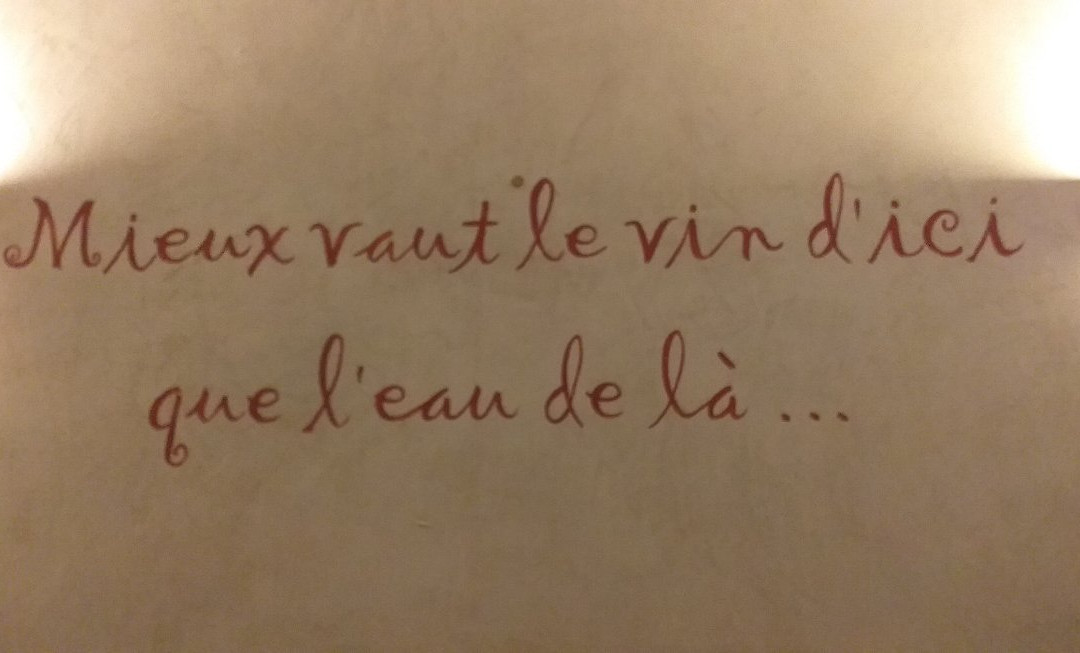 Mieux vaut le vin d'ici
que l'eau de là...